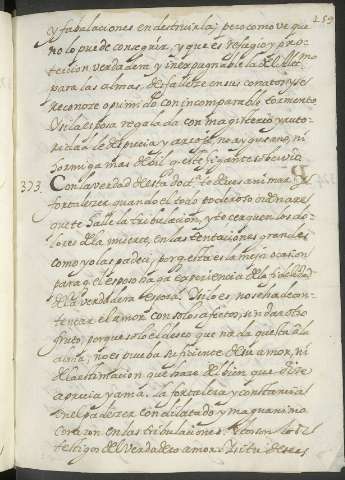 259
y fabulaciones en destruirla; pero como ve que
no lo puede conseguir, y que es refugio y pro-
teccion verdadera y inexpugnable la del Altmo
para las almas, desfalleze en sus conatos, y se
reconoze oprimido con incomparable tormento.
Y si la esposa regalada con magisterio y auto-
ridad le desprecia y arroja, no ay gusano, ni
hormiga mas debil que este gigante soberuio.
373 Con la verdad de esta doctr. te deues animar y
fortalezer, quando el todo poderoso ordenare
que te halle la tribulacion, y te cerquen los do-
lores de la muerte, en las tentaciones grandes
como yo las padeci, porque esta es la mejor ocasion
para que el esposo haga experiencia de la fidelidad
de la verdadera esposa. Y si lo es, no se ha de con-
tentar el amor con solos afectos, sin dar otro
fruto, porque solo el deseo que nada cuesta a la
alma, no es prueba suficiente de su amor, ni
de la estimacion que haze del bien que dize
aprecia y ama. La fortaleza y constancia
en el padezer con dilatado y magnanimo
corazon en las tribulaciones, estos son los
testigos del verdadero amor. Y si tu deseas